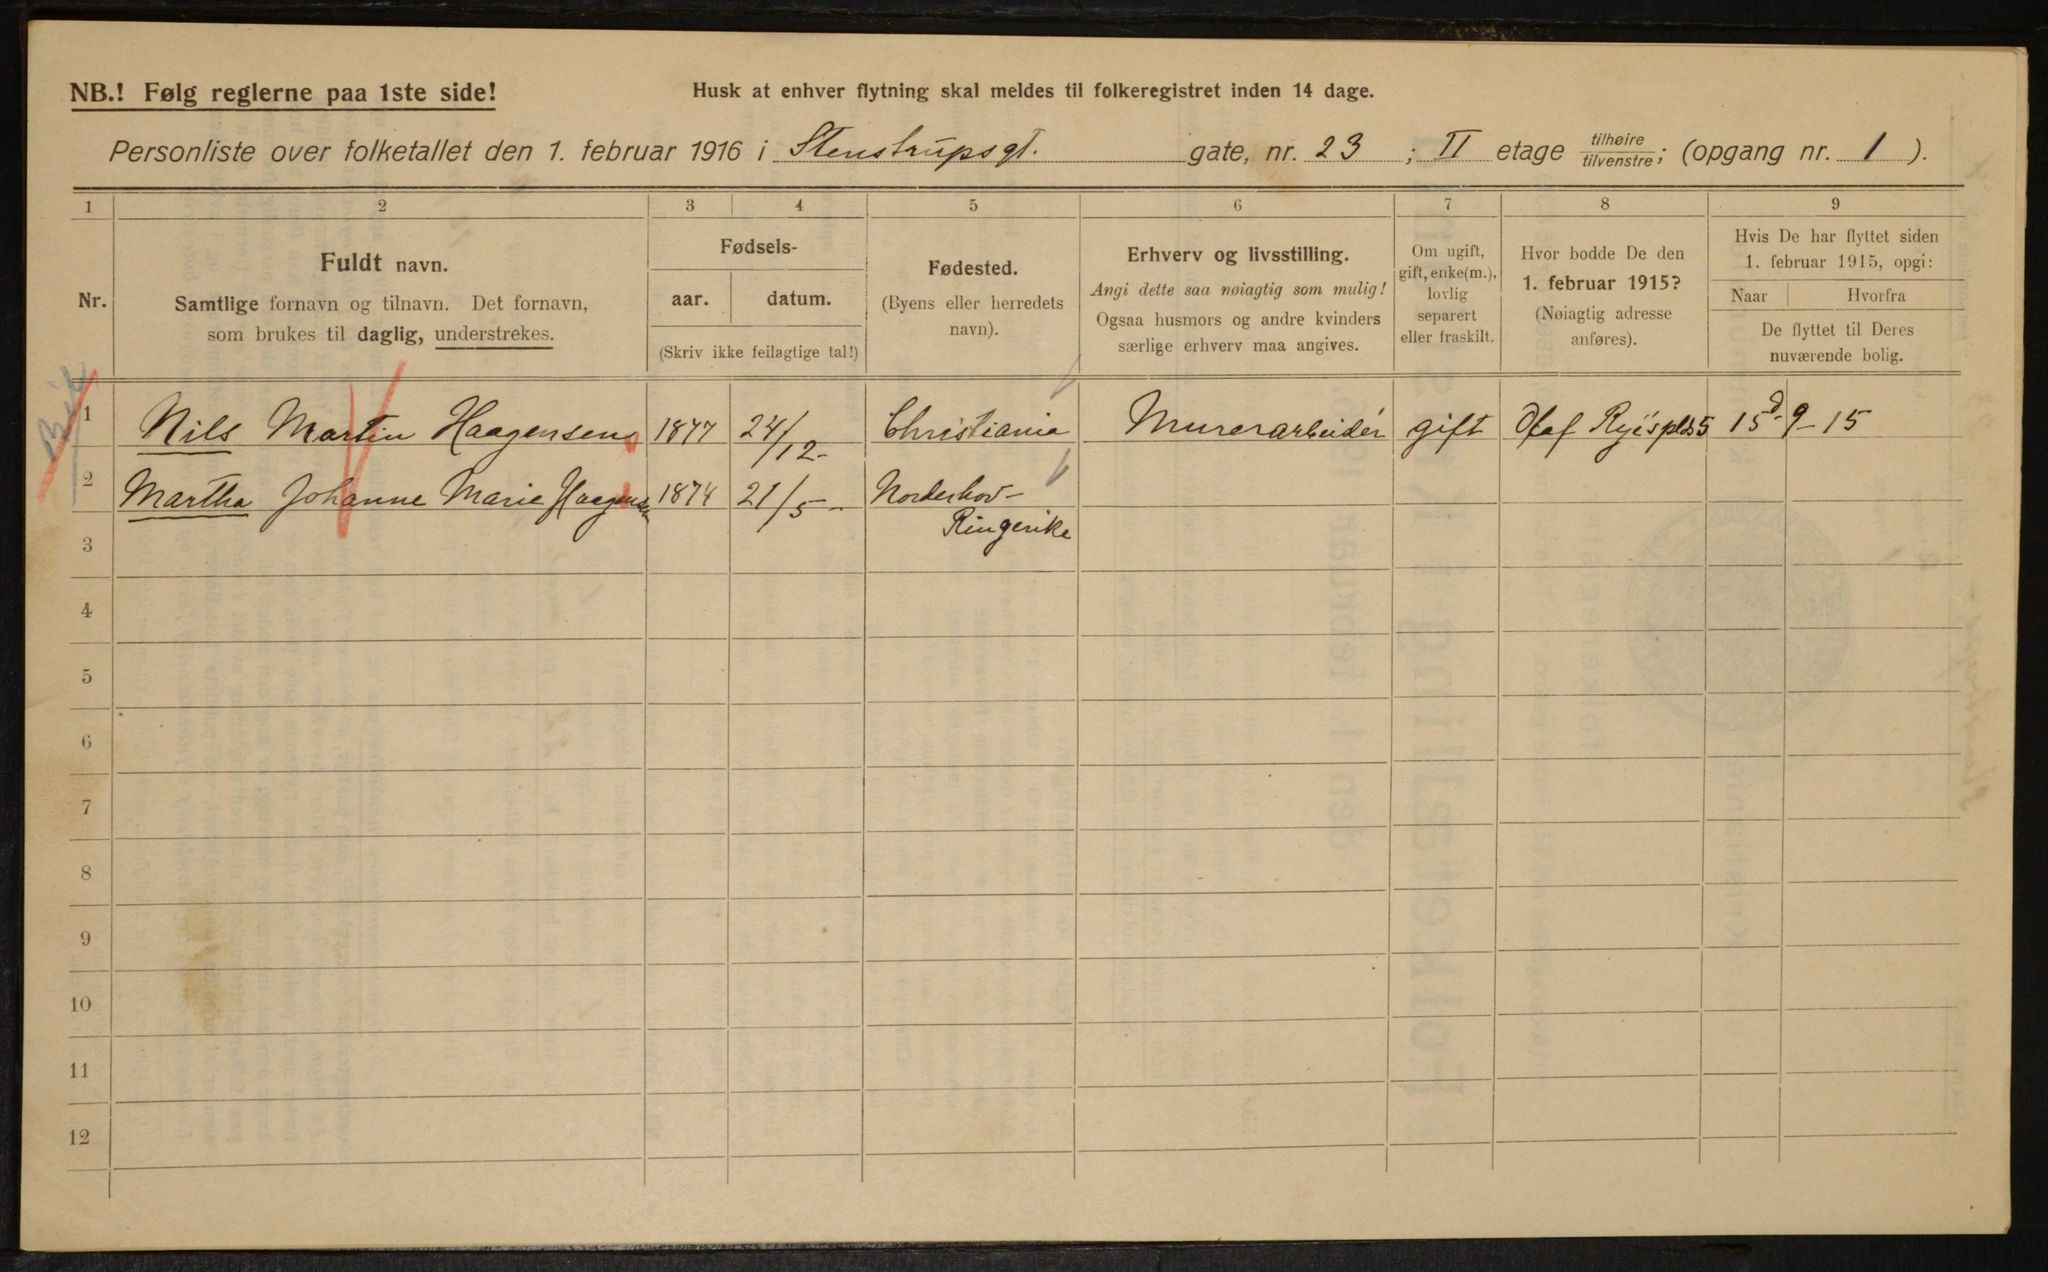 NB.! Følg reglerne paa 1ste side!
Husk at enhver flytning skal meldes til folkeregistret inden 14 dage.
Personliste over folketallet den 1. februar 1916 i Stenstrupsgt. gate, nr. 23 ; II etage tilhøire/tilvenstre; (opgang nr. 1 ).
1 2 3 4 5 6 7 8 9
Nr.
Fuldt navn.
Samtlige fornavn og tilnavn. Det fornavn,
som brukes til daglig, understrekes.
Fødsels-
aar. datum.
(Skriv ikke feilagtige tal!)
Fødested.
(Byens eller herredets
navn).
Erhverv og livsstilling.
Angi dette saa nøiagtig som mulig!
Ogsaa husmors og andre kvinders
særlige erhverv maa angives.
Om ugift,
gift, enke(m.),
lovlig
separert
eller fraskilt.
Hvor bodde De den
1. februar 1915?
(Nøiagtig adresse
anføres).
Hvis De har flyttet siden
1. februar 1915, opgi:
Naar Hvorfra
De flyttet til Deres
nuværende bolig.
1 Nils Martin Haagensen 1877 24/12- Christiania Murerarbeider gift Olaf Ryisplds 5 15d-9-15
2 Martha Johanne Marie Haagensen 1874 21/5- Norderhov-
Ringerike
3
4
5
6
7
8
9
10
11
12